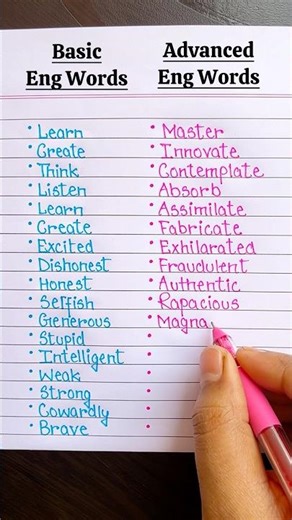 Basic Eng Words
Advanced Eng Words
• Learn
• Create
• Think
• Listen
• Learn
• Create
• Excited
• Dishonest
• Honest
• Selfish
• Generous
• Stupid
• Intelligent
• Weak
• Strong
• Cowardly
• Brave
• Master
• Innovate
• Contemplate
• Absorb
• Assimilate
• Fabricate
• Exhilarated
• Fraudulent
• Authentic
• Rapacious
• Magna